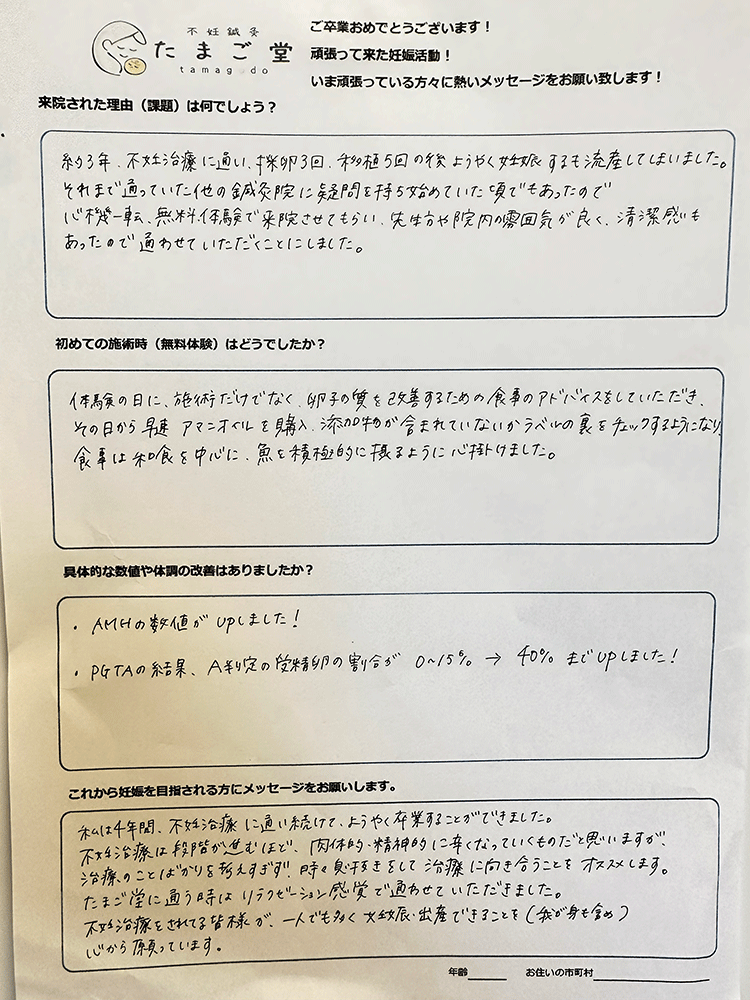 不妊鍼灸
たまご堂
tamagodo
ご卒業おめでとうございます！
頑張って来た妊娠活動！
いま頑張っている方々に熱いメッセージをお願い致します！
来院された理由（課題）は何でしょう？
約3年、不妊治療に通い、採卵3回、移植5回の後ようやく妊娠するも流産してしまいました。
それまで通っていた他の鍼灸院に疑問を持ち始めていた頃でもあったので
心機一転、無料体験で来院させてもらい、先生方や院内の雰囲気が良く、清潔感も
あったので通わせていただくことにしました。
初めての施術時（無料体験）はどうでしたか？
体験の日に、施術だけでなく、卵子の質を改善するための食事のアドバイスをしていただき、
その日から早速アマニオイルを購入、添加物が含まれていないかラベルの裏をチェックするようになり、
食事は和食を中心に、魚を積極的に摂るように心掛けました。
具体的な数値や体調の改善はありましたか？
・AMHの数値がUPしました！
・PGTAの結果、A判定の受精卵の割合が 0～15% → 40% までUPしました！
これから妊娠を目指される方にメッセージをお願いします。
私は4年間、不妊治療に通い続けて、ようやく卒業することができました。
不妊治療は段階が進むほど、肉体的・精神的に辛くなっていくものだと思いますが、
治療のことばかりを考えすぎず、時々息抜きをして治療に向き合うことをオススメします。
たまご堂に通う時はリラクゼーション感覚で通わせていただきました。
不妊治療をされてる皆様が、一人でも多く妊娠・出産できることを（我が身も含め）
心から願っています。
年齢 お住いの市町村